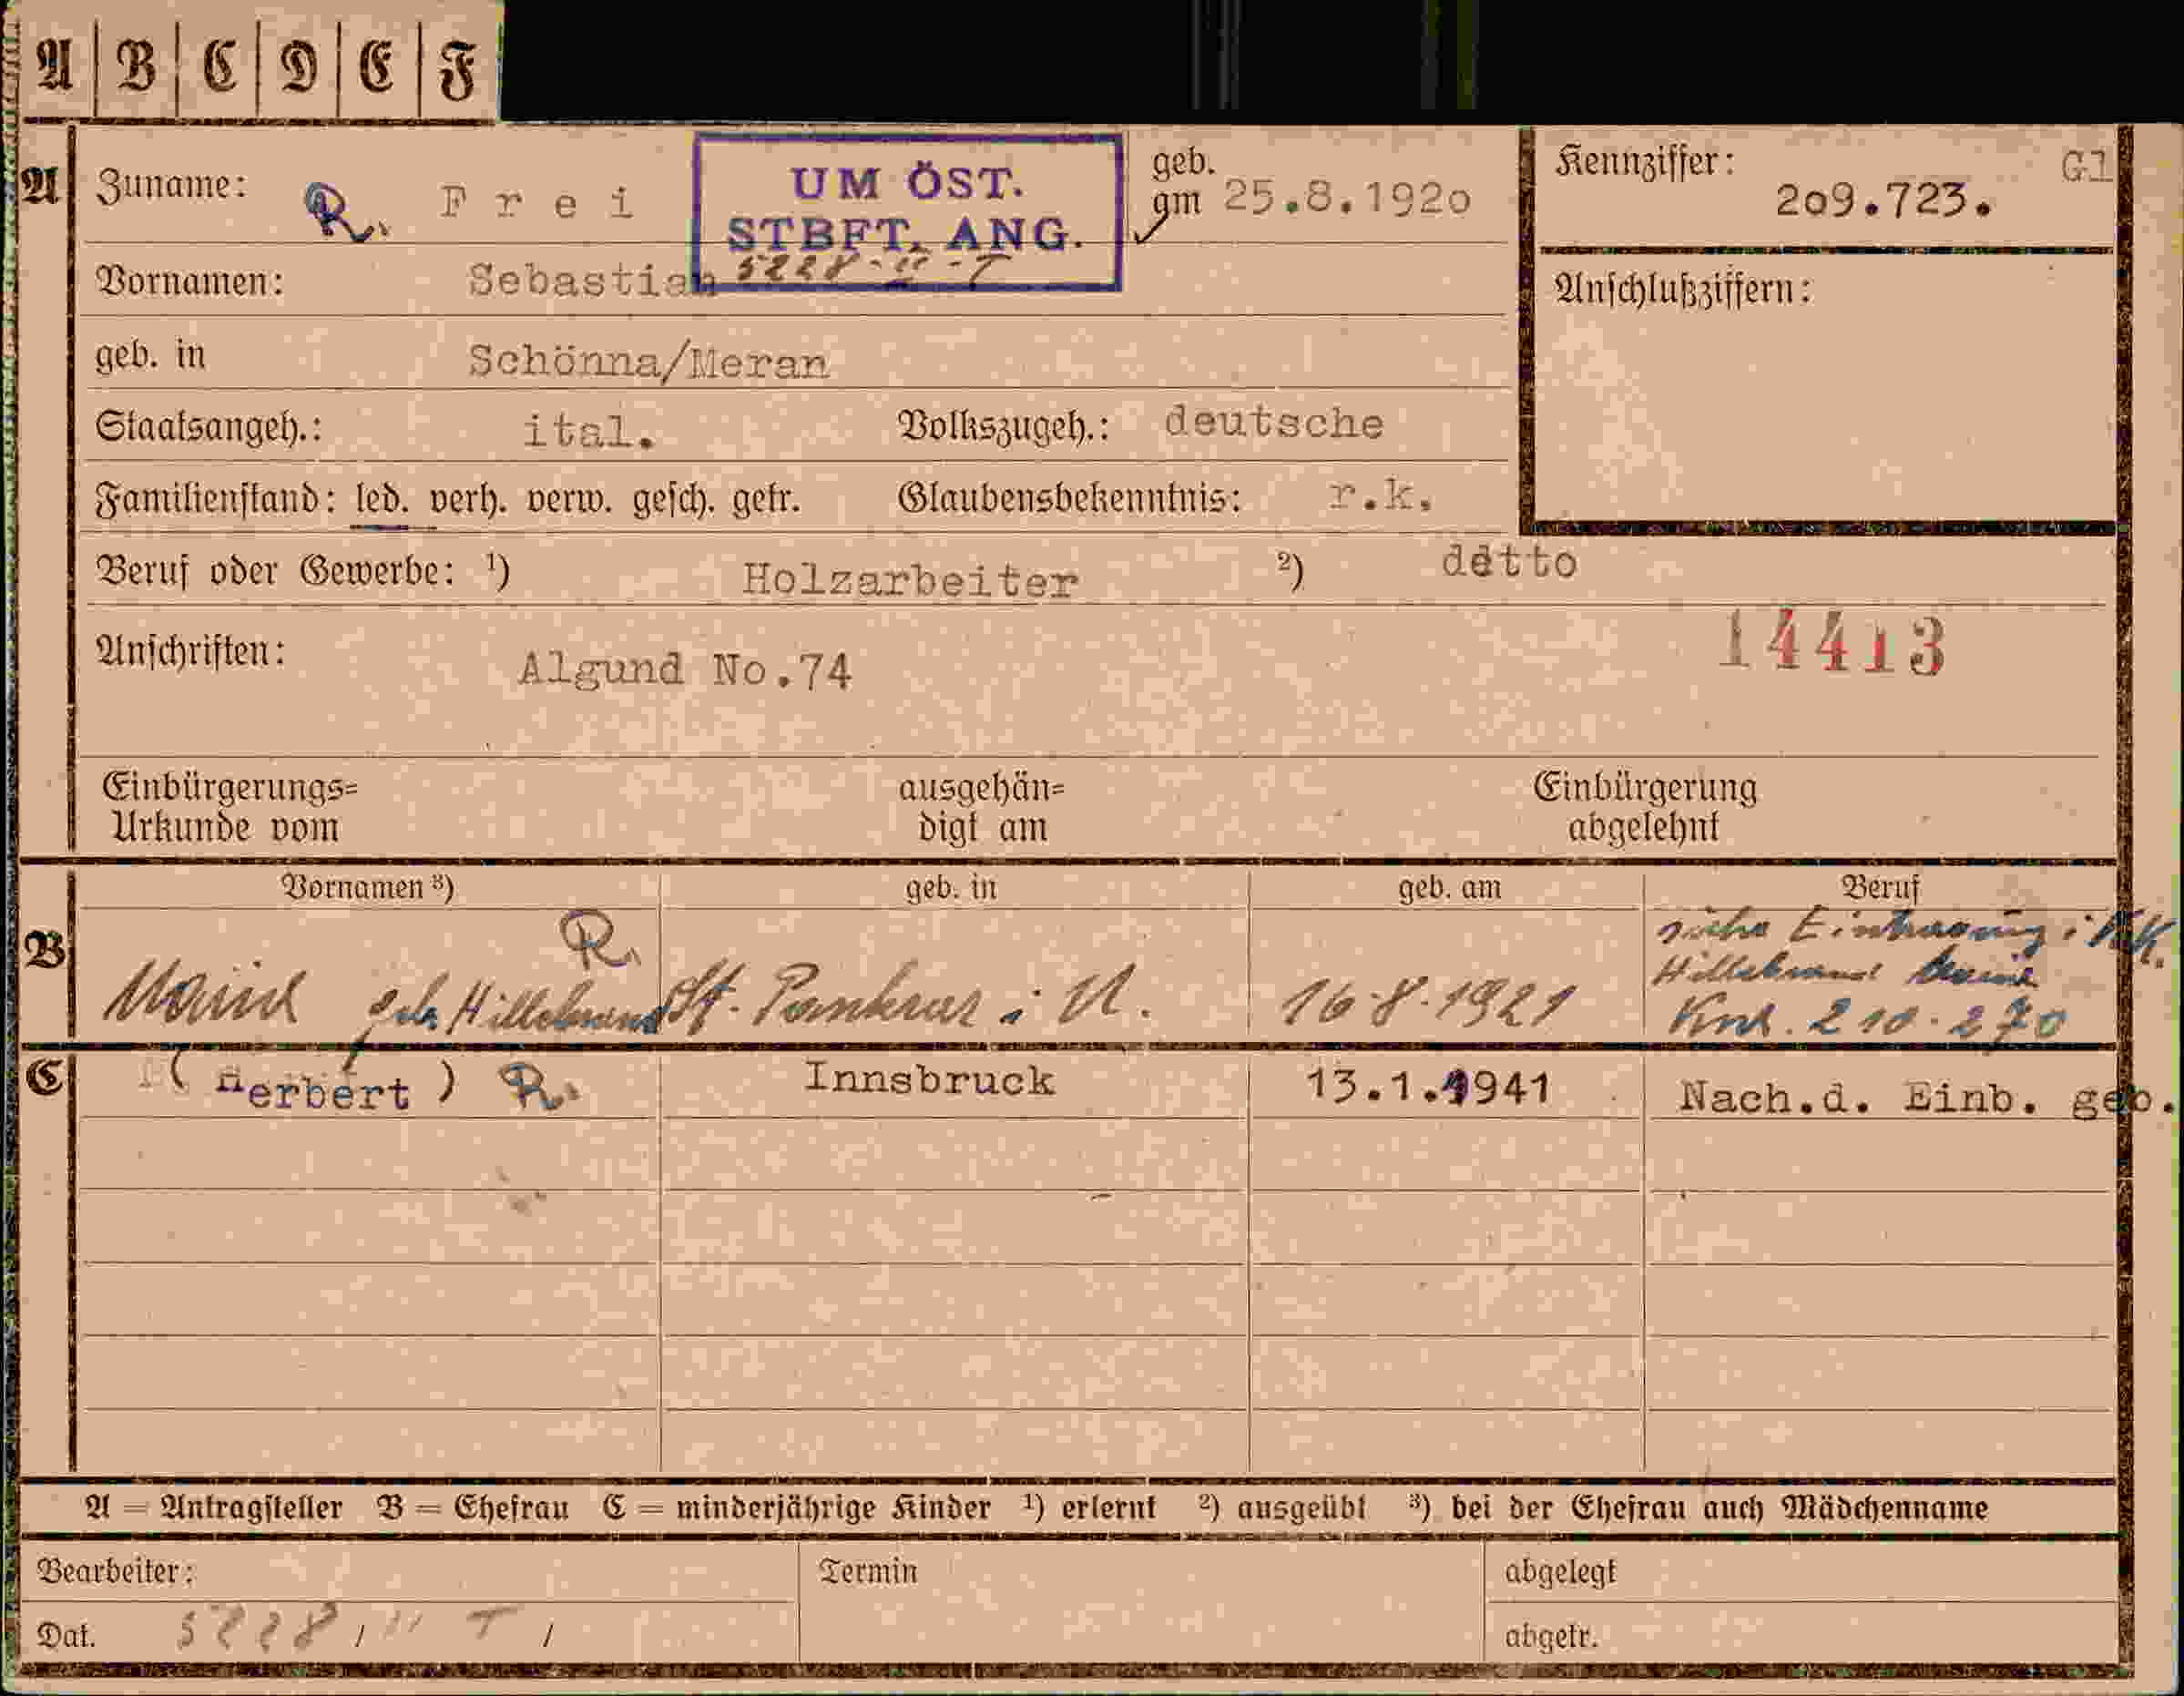 A B C D E F
A Zuname: R. Frei
UM ÖST.
STBFT. ANG.
5228-II-T
geb.
am 25.8.1920
Kennziffer: 209.723. Gl
Vornamen: Sebastian
Anschlußziffern:
geb. in Schönna/Meran
Staatsangeh.: ital. Volkszugeh.: deutsche
Familienstand: led. verh. verw. gesch. getr. Glaubensbekenntnis: r.k.
Beruf oder Gewerbe: ¹) Holzarbeiter ²) detto
14413
Anschriften: Algund No.74
Einbürgerungs=
Urkunde vom
ausgehän=
digt am
Einbürgerung
abgelehnt
Vornamen ³) geb. in geb. am Beruf
B R.
siehe Eintragung i. K.K.
Hillebrand Maria
Maria geb. Hillebrand St. Pankraz i. U. 16.8.1921 Knz. 210.270
C (Herbert) R. Innsbruck 13.1.1941 Nach.d. Einb. geb.
A = Antragsteller B = Ehefrau C = minderjährige Kinder ¹) erlernt ²) ausgeübt ³) bei der Ehefrau auch Mädchenname
Bearbeiter: Termin abgelegt
Dat. 5228/II T/ abgetr.